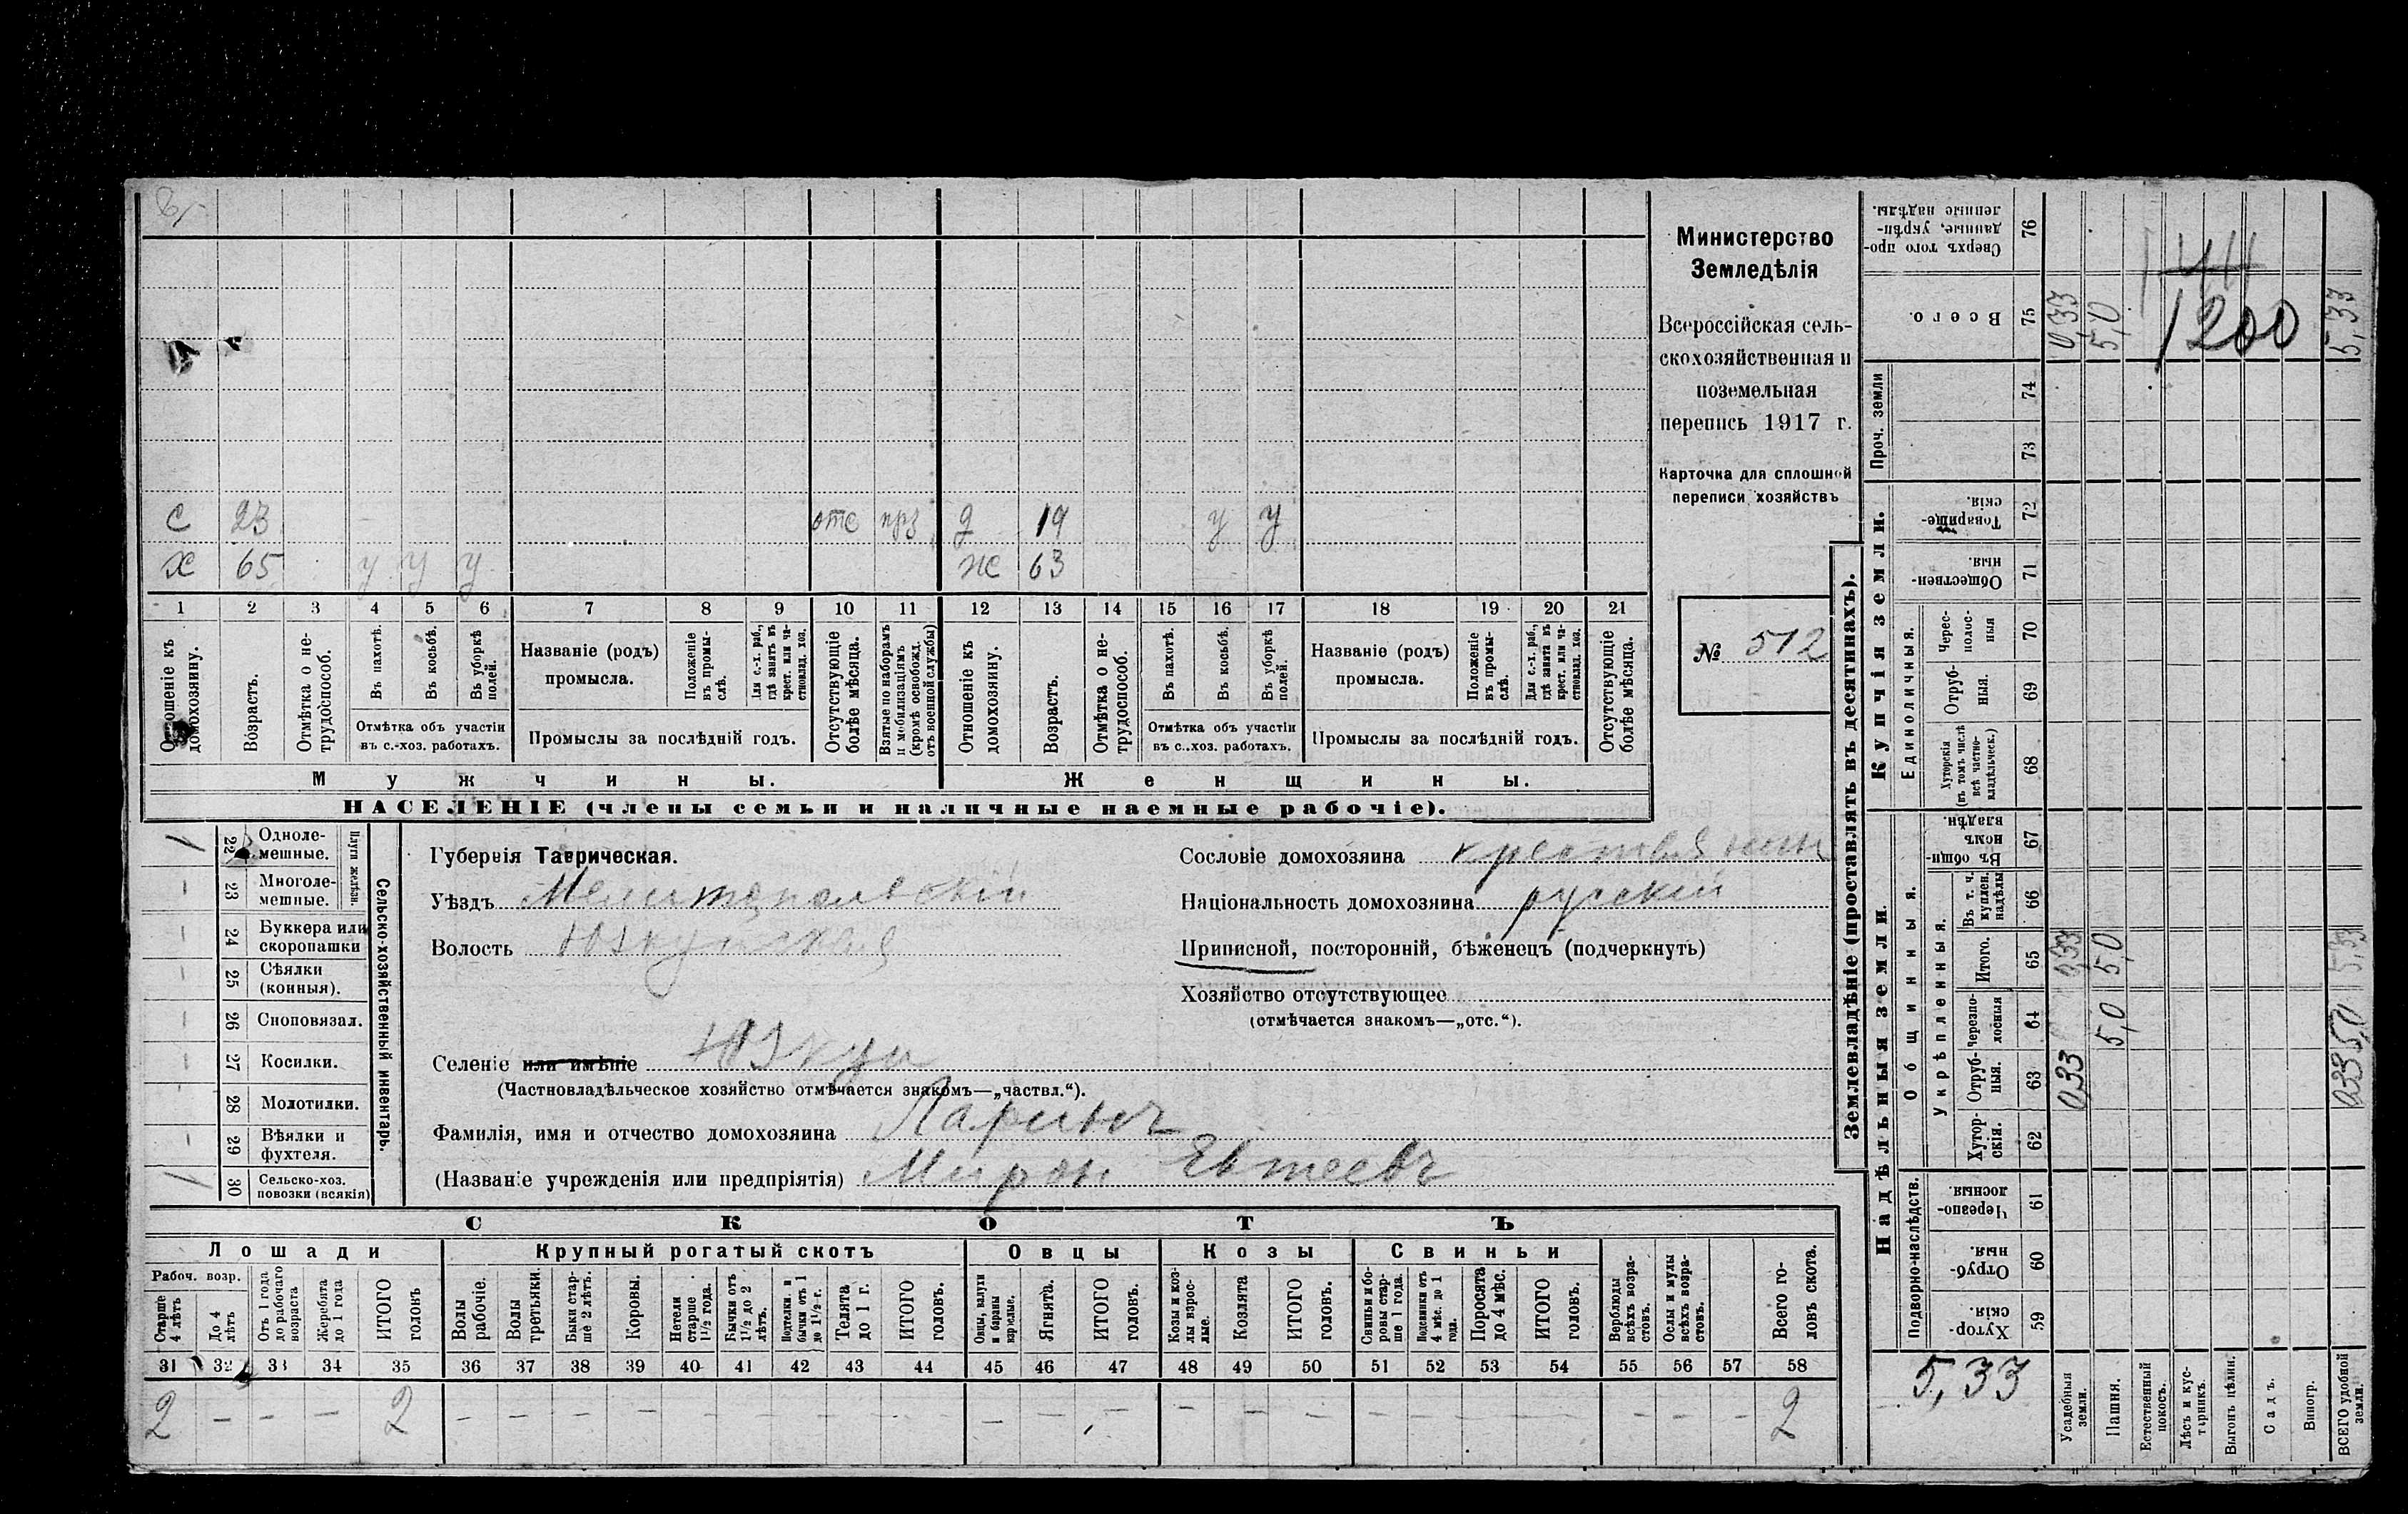 с 23 отс прз д 19 у у
х 65 у у у ж 63
1 2 3 4 5 6 7 8 9 10 11 12 13 14 15 16 17 18 19 20 21
Отношеніе къ домохозяину.
Возрастъ.
Отмѣтка о нетрудоспособ.
Въ пахотѣ.
Въ косьбѣ.
Въ уборкѣ полей.
Отмѣтка объ участіи
въ с.-хоз. работахъ.
Названіе (родъ)
промысла.
Положеніе въ промыслѣ.
Для с.-х. раб., гдѣ занятъ въ крест. или частновлад. хоз.
Промыслы за послѣдній годъ.
Отсутствующіе болѣе мѣсяца.
Взятые по наборамъ и мобилизаціямъ (кромѣ освобожд. отъ военной службы)
Отношеніе къ домохозяину.
Возрастъ.
Отмѣтка о нетрудоспособ.
Въ пахотѣ.
Въ косьбѣ.
Въ уборкѣ полей.
Отмѣтка объ участіи
въ с..хоз. работахъ.
Названіе (родъ)
промысла.
Положеніе въ промыслѣ.
Для с.-х. раб., гдѣ занята въ крест. или частновлад. хоз.
Промыслы за послѣдній годъ.
Отсутствующіе болѣе мѣсяца.
Мужчины. Женщины.
НАСЕЛЕНІЕ (члены семьи и наличные наемные рабочіе).
Министерство
Земледѣлія
Всероссійская сель-
скохозяйственная и
поземельная
перепись 1917 г.
Карточка для сплошной
переписи хозяйствъ
№ 512
Сельско-хозяйственный инвентарь.
Плуги желѣзн.
1 22 Однолемешные.
– 23 Многолемешные.
– 24 Буккера или скоропашки
– 25 Сѣялки (конныя).
– 26 Сноповязал.
– 27 Косилки.
– 28 Молотилки.
– 29 Вѣялки и фухтеля.
1 30 Сельско-хоз. повозки (всякія)
Губернія Таврическая.
Уѣздъ Мелитопольскій
Волость Юзкуйская
Селеніе или имѣніе Юзкуи
(Частновладѣльческое хозяйство отмѣчается знакомъ—„частвл.“).
Фамилія, имя и отчество домохозяина Ларинъ
(Названіе учрежденія или предпріятія) Мирон Евтеевъ
Сословіе домохозяина крестьянинъ
Національность домохозяина русскій
Приписной, посторонній, бѣженецъ (подчеркнуть)
Хозяйство отсутствующее
(отмѣчается знакомъ—„отс.“).
СКОТЪ
Лошади Крупный рогатый скотъ Овцы Козы Свиньи
Рабоч. возр.
Старше 4 лѣтъ
До 4 лѣтъ
Отъ 1 года до рабочаго возраста
Жеребята до 1 года
ИТОГО головъ
Волы рабочіе.
Волы третьяки.
Быки старше 2 лѣтъ.
Коровы.
Нетели старше 1½ года.
Бычки отъ 1½ до 2 лѣтъ.
Подтелки и бычки отъ 1 до 1½ г.
Телята до 1 г.
ИТОГО головъ.
Овцы, валухи и бараны взрослые.
Ягнята.
ИТОГО головъ.
Козы и козлы взрослые.
Козлята
ИТОГО головъ.
Свиньи и боровы старше 1 года.
Подсвинки отъ 4 мѣс. до 1 года.
Поросята до 4 мѣс.
ИТОГО головъ.
Верблюды всѣхъ возрастовъ.
Ослы и мулы всѣхъ возрастовъ.
Всего головъ скота.
31 32 33 34 35 36 37 38 39 40 41 42 43 44 45 46 47 48 49 50 51 52 53 54 55 56 57 58
2 – – – 2 – – – – – – – – – – – – – – – – – – – – – – 2
Землевладѣніе (проставлять въ десятинахъ).
Надѣльныя земли.
Купчія земли.
Проч. земли
Подворно-наслѣдств.
Общинныя.
Укрѣпленныя.
Единоличныя.
59 Хуторскія.
60 Отрубныя.
61 Черезполосныя.
62 Хуторскія.
63 Отрубныя.
64 Черезполосныя
65 Итого.
66 Въ т. ч. куплен. надѣлы
67 Въ общинномъ владѣн.
68 Хуторскія (въ томъ числѣ всѣ частновладѣльческ.)
69 Отрубныя.
70 Чересполосныя
71 Общественныя.
72 Товарищескія.
73
74
75 Всего.
76 Сверхъ того проданные, укрѣпленные надѣлы.
5,33
Усадебныя земли. 0,33 0,33 0,33
Пашня. 5,0 5,0 5,0
Естественный покосъ.
Лѣсъ и кустарникъ.
Выгонъ цѣлин.
Садъ.
Виногр.
ВСЕГО удобной земли. 0,33 5,0 5,33 5,33
1200